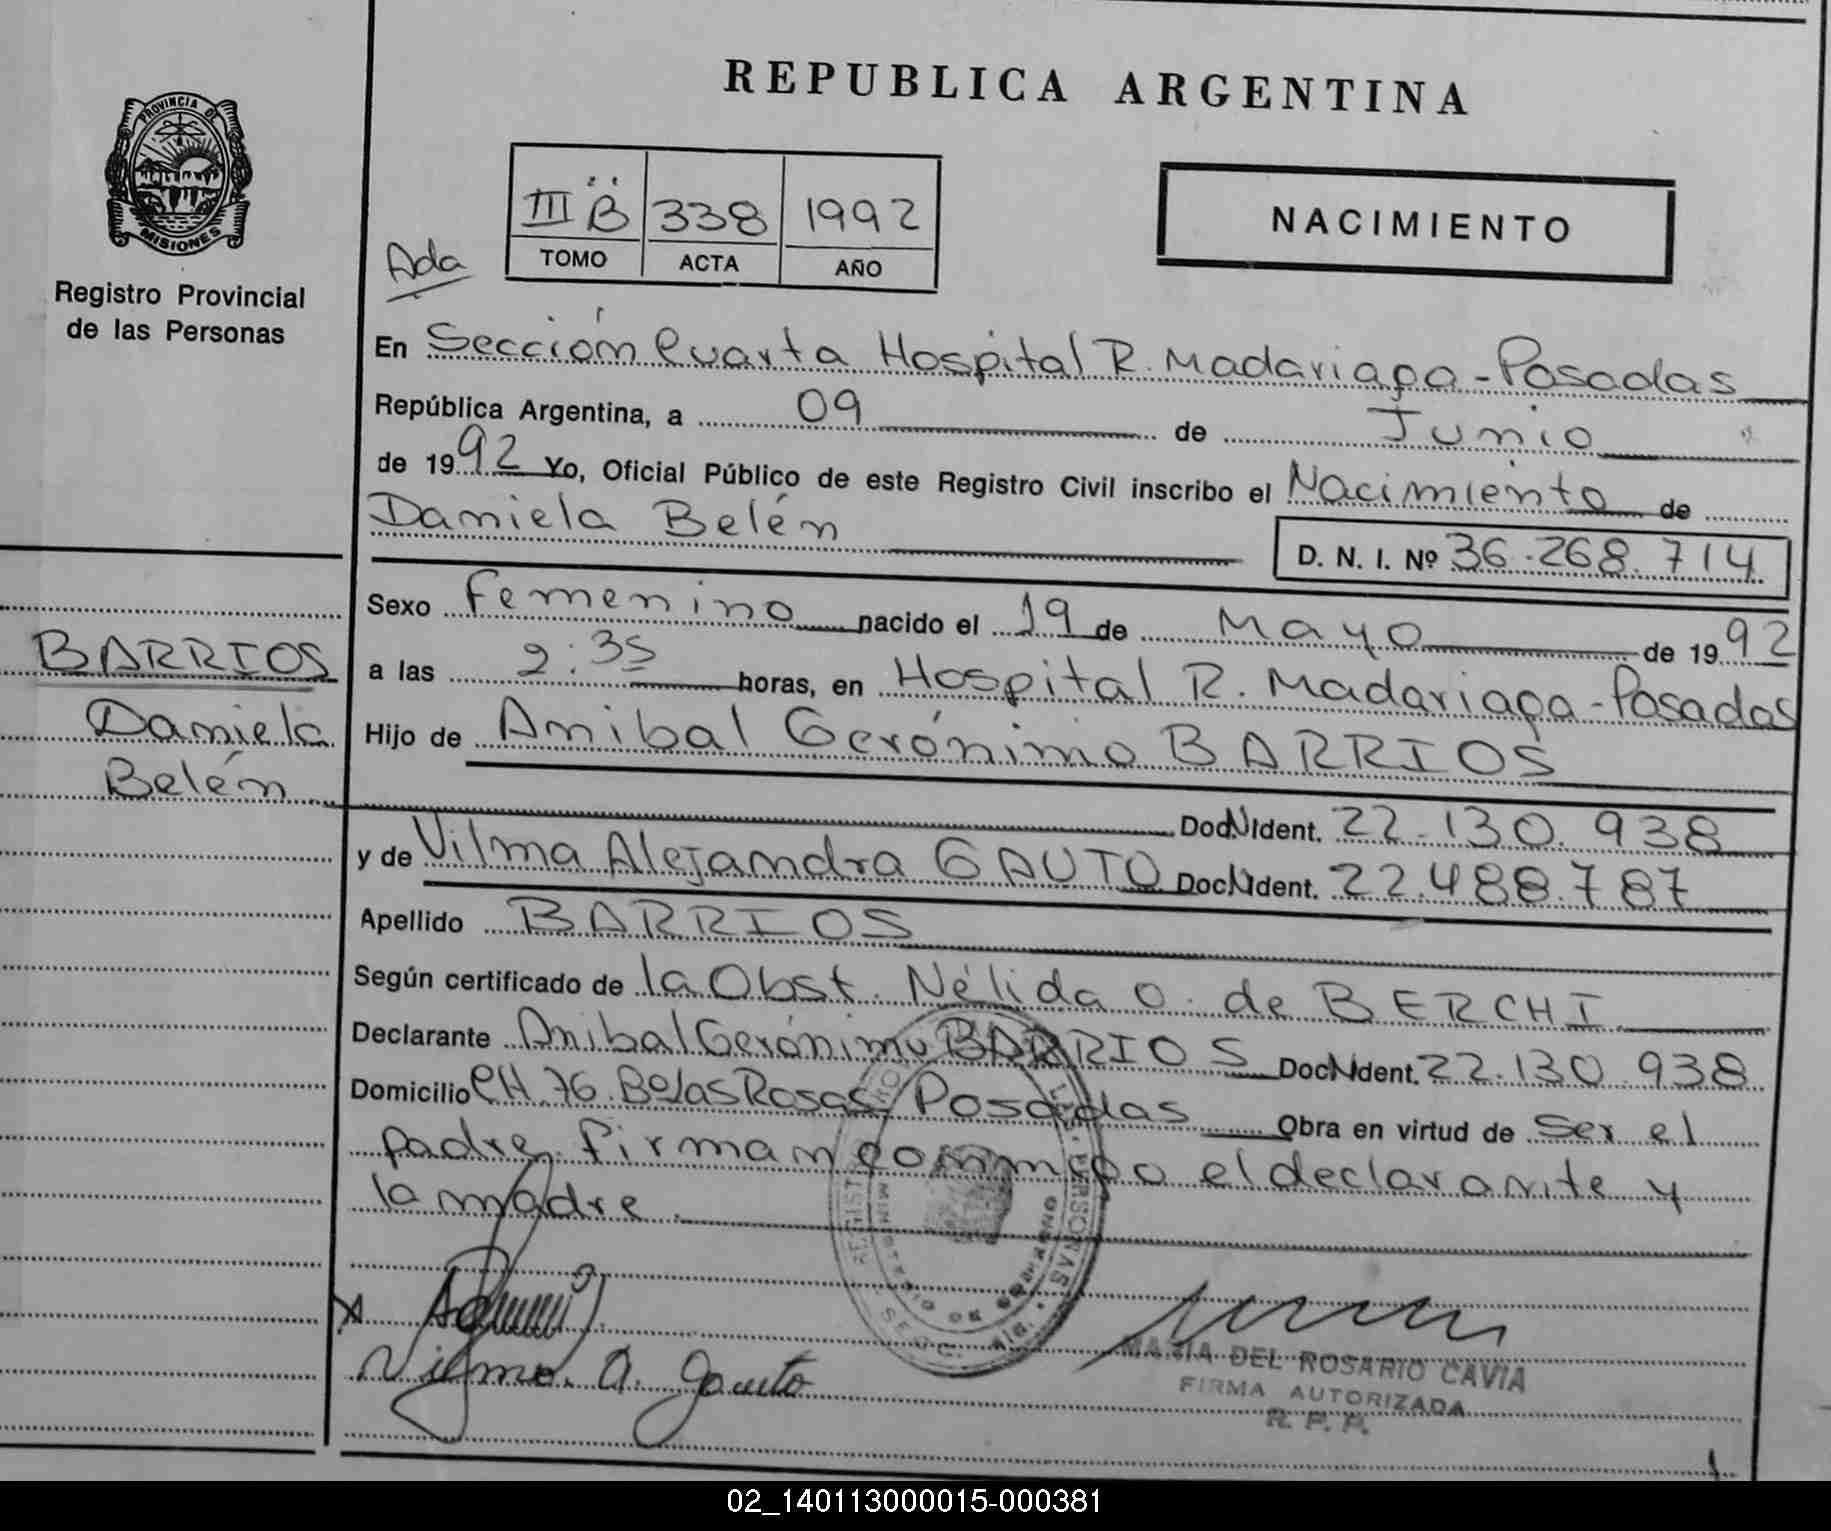 REPUBLICA ARGENTINA
PROVINCIA DE
MISIONES
Registro Provincial
de las Personas
III "B" 338 1992
TOMO ACTA AÑO
NACIMIENTO
Ada
En Sección Cuarta Hospital R. Madariaga - Posadas
República Argentina, a 09 de Junio
de 1992 Yo, Oficial Público de este Registro Civil inscribo el Nacimiento de
Daniela Belén
D. N. I. Nº 36.268.714
Sexo Femenino nacido el 19 de Mayo de 1992
a las 2:35 horas, en Hospital R. Madariaga - Posadas
Hijo de Anibal Gerónimo BARRIOS
Doc. N. Ident. 22.130.938
y de Vilma Alejandra GAUTO Doc. N. Ident. 22.488.787
Apellido BARRIOS
Según certificado de la Obst. Nélida O. de BERCHI
Declarante Anibal Gerónimo BARRIOS Doc. N. Ident. 22.130.938
Domicilio CH. 76. Bº Las Rosas Posadas Obra en virtud de Ser el
padre firman conmigo el declarante y
la madre.
BARRIOS
Daniela
Belén
Vilma. A. Gauto
MARIA DEL ROSARIO CAVIA
FIRMA AUTORIZADA
R. P. P.
02_140113000015-000381